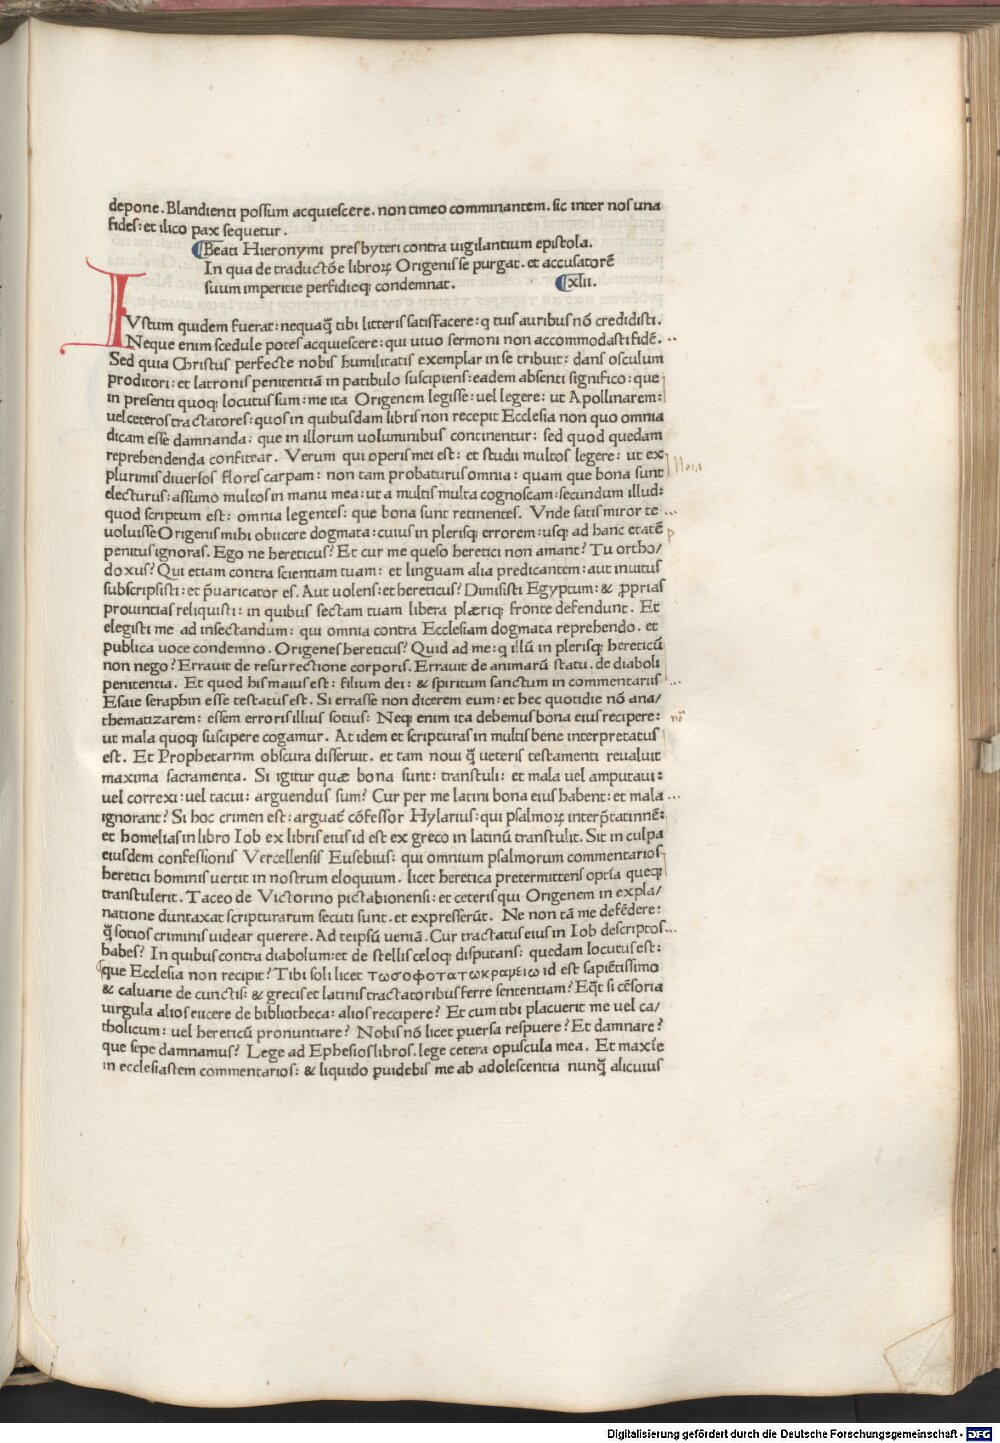 depone. Blandienti possum acquiescere. non timeo comminantem. sic inter nos una
fides: et ilico pax sequetur.
Beati Hieronymi presbyteri contra uigilantium epistola.
In qua de traductõe libroꝝ Origenis se purgat. et accusatorẽ
suum imperitie perfidieqꝫ condemnat. xlii.
IVstum quidem fuerat: nequaꝗ̃ tibi litteris satisfacere: ꝙ tuis auribus nõ credidisti.
Neque enim scedule potes acquiescere: qui uiuo sermoni non accommodasti fidẽ.
Sed quia Christus perfecte nobis humilitatis exemplar in se tribuit: dans osculum
proditori: et latronis penitentiã in patibulo suscipiens: eadem absenti significo: que
in presenti quoqꝫ locutus sum: me ita Origenem legisse: uel legere: ut Apollinarem:
uel ceteros tractatores: quos in quibusdam libris non recepit Ecclesia non quo omnia
dicam esse damnanda: que in illorum uoluminibus continentur: sed quod quedam
reprehendenda confitear. Verum qui operis mei est: et studii multos legere: ut ex
plurimis diuersos flores carpam: non tam probaturus omnia: quam que bona sunt
electurus: assumo multos in manu mea: ut a multis multa cognoscam: secundum illud:
quod scriptum est: omnia legentes: que bona sunt retinentes. Vnde satis miror te
uoluisse Origenis mihi obiicere dogmata: cuius in plerisqꝫ errorem: usqꝫ ad hanc etatẽ
penitus ignoras. Ego ne hereticus? Et cur me queso heretici non amant? Tu ortho/
doxus? Qui etiam contra scientiam tuam: et linguam alia predicantem: aut inuitus
subscripsisti: et p̃uaricator es. Aut uolens: et hereticus? Dimisisti Egyptum: & ꝓprias
prouintias reliquisti: in quibus sectam tuam libera plæriqꝫ fronte defendunt. Et
elegisti me ad insectandum: qui omnia contra Ecclesiam dogmata reprehendo. et
publica uoce condemno. Origenes hereticus? Quid ad me: ꝙ illũ in plerisqꝫ hereticũ
non nego? Errauit de resurrectione corporis. Errauit de animarũ statu. de diaboli
penitentia. Et quod his maius est: filium dei: & spiritum sanctum in commentariis
Esaie seraphin esse testatus est. Si errasse non dicerem eum: et hec quotidie nõ ana/
thematizarem: essem erroris illius sotius: Neqꝫ enim ita debemus bona eius recipere:
ut mala quoqꝫ suscipere cogamur. At idem et scripturas in multis bene interpretatus
est. Et Prophetarnm obscura disseruit. et tam noui ꝗ̃ ueteris testamenti reualuit
maxima sacramenta. Si igitur quæ bona sunt: transtuli: et mala uel amputaui:
uel correxi: uel tacui: arguendus sum? Cur per me latini bona eius habent: et mala
ignorant? Si hoc crimen est: arguat̃ cõfessor Hylarius: qui psalmoꝝ interp̃tatinnẽ:
et homelias in libro Iob ex libris eius id est ex greco in latinũ transtulit. Sit in culpa
eiusdem confessionis Vercellensis Eusebius: qui omnium psalmorum commentarios
heretici hominis uertit in nostrum eloquium. licet heretica pretermittens optĩa queqꝫ
transtulerit. Taceo de Victorino pictabionensi: et ceteris qui Origenem in expla/
natione duntaxat scripturarum secuti sunt. et expresserũt. Ne non tã me defẽdere:
ꝗ̃ sotios criminis uidear querere. Ad teipsũ ueniã. Cur tractatus eius in Iob descriptos
babes? In quibus contra diabolum: et de stellis celoqꝫ disputans: quedam locutus est:
que Ecclesia non recipit? Tibi soli licet τωσοφοτατωκρανειω id est sapiẽtissimo
& caluarie de cunctis: & grecis et latinis tractatoribus ferre sententiam? Eꝗ̃t si cẽsoria
uirgula alios eiicere de bibliotheca: alios reccipere? Et cum tibi placuerit me uel ca/
tholicum: uel hereticũ pronuntiare? Nobis nõ licet ꝑuersa respuere? Et damnare?
que sepe damnamus? Lege ad Ephesios libros. lege cetera opuscula mea. Et maxĩe
in ecclesiastem commentarios: & liquido ꝑuidebis me ab adolescentia nunꝗ̃ alicuius
Digitalisierung gefördert durch die Deutsche Forschungsgemeinschaft - DFG